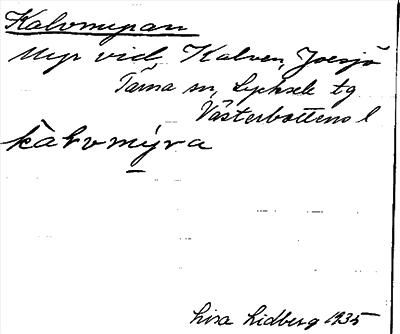 Kalvmyran
Myr vid Kalven, Joesjö
Tärna sn, Lycksele tg
Västerbottens l
kàlvmýra
Lisa Lidberg 1935